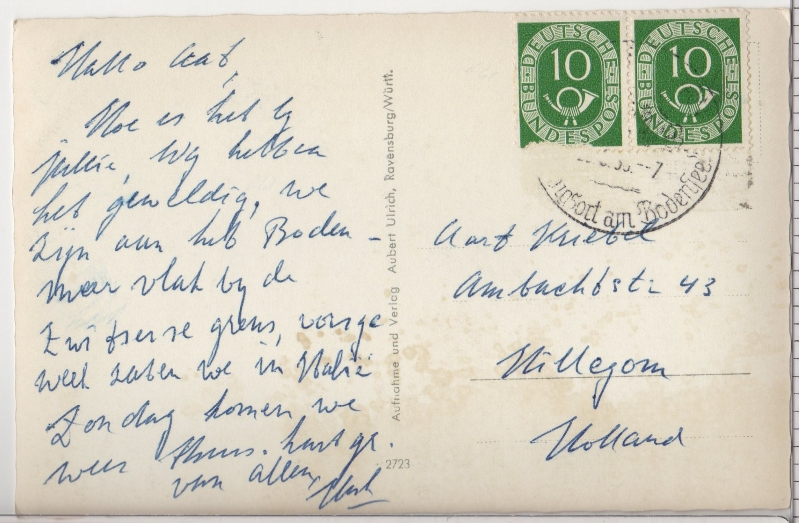 Hallo Aat,
Hoe is het by
jullie, wy hebben
het geweldig, we
zijn aan het Boden-
meer vlak by de
Zwitserse grens, vorige
week zaten we in Italië
Zondag komen we
weer thuis. hart. gr.
van allen,
Aufnahme und Verlag Aubert Ulrich, Ravensburg/Württ.
2723
DEUTSCHE BUNDESPOST
10
DEUTSCHE BUNDESPOST
10
am Bodensee
Aart Kriebel
Ambachtstr 43
Hillegom
Holland